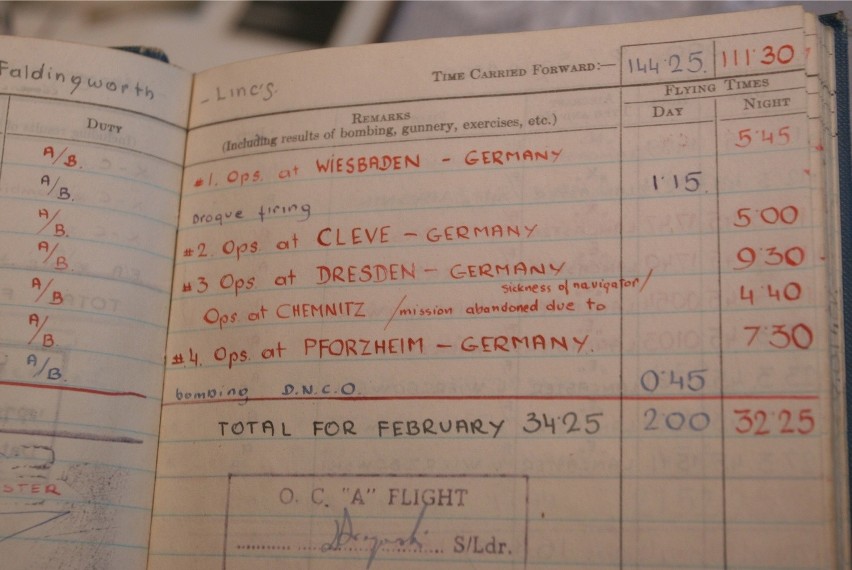 Faldingworth - Linc's. TIME CARRIED FORWARD:— 144·25. 111·30
DUTY REMARKS FLYING TIMES
(Including results of bombing, gunnery, exercises, etc.) DAY NIGHT
A/B. #1. Ops. at WIESBADEN - GERMANY 5·45
A/B. Drogue firing 1·15.
A/B. #2 Ops. at CLEVE - GERMANY 5·00
A/B. #3 Ops at DRESDEN - GERMANY 9·30
sickness of navigator/
A/B. Ops at CHEMNITZ /mission abandoned due to 4·40
A/B. #4. Ops. at PFORZHEIM - GERMANY. 7·30
A/B. bombing D.N.C.O. 0·45
TOTAL FOR FEBRUARY 34·25 2·00 32·25
O. C. "A" FLIGHT
S/Ldr.
STER